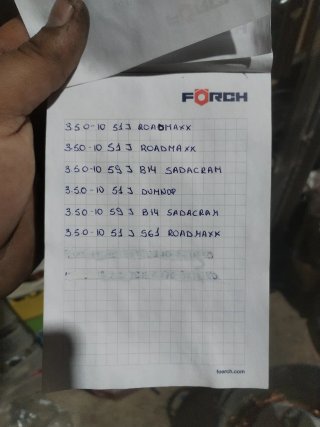 FÖRCH
3.50-10 51 J ROADMAXX
3.50-10 51 J ROADMAXX
3.50-10 59 J B14 SADACRAM
3.50-10 51 J DUNNOP
3.50-10 59 J B14 SADACRAM
3.50-10 51 J 561 ROADMAXX
foerch.com